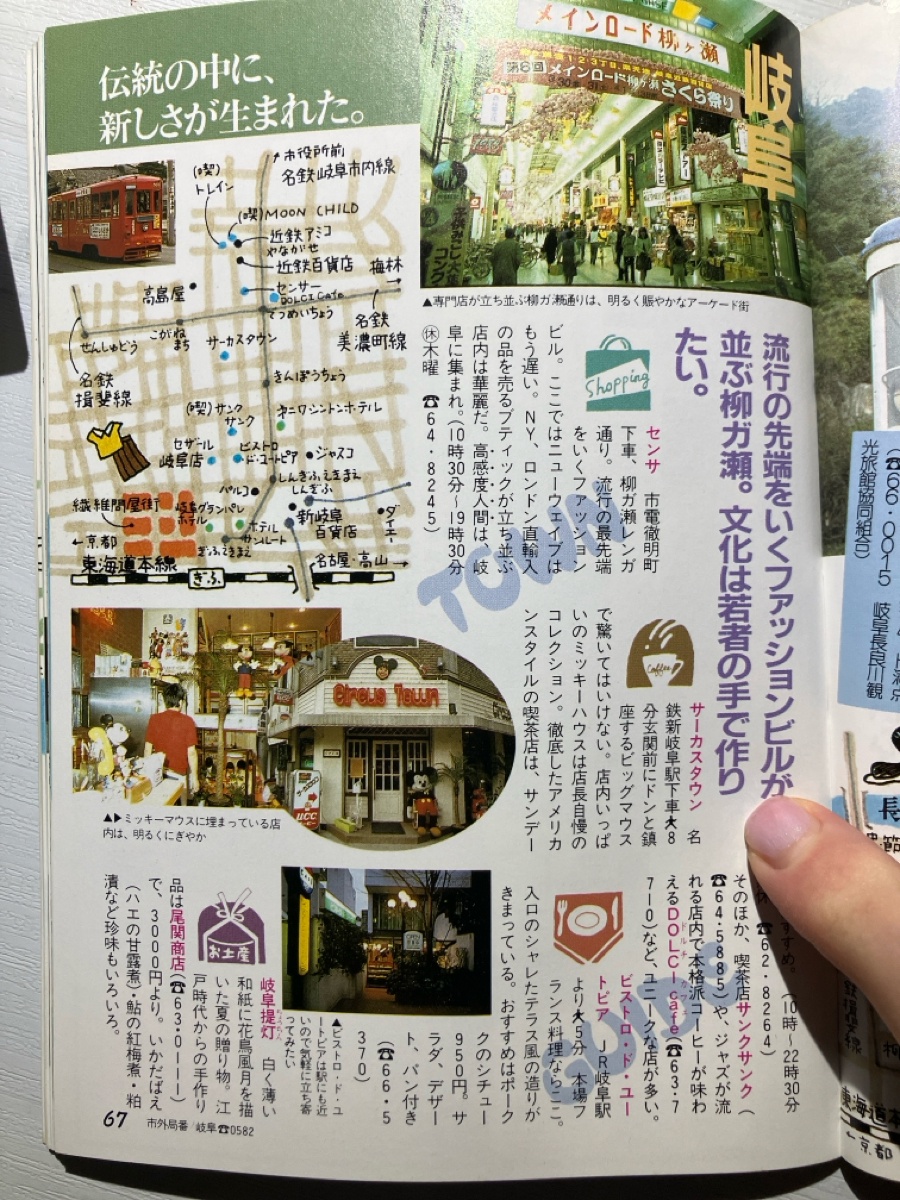 伝統の中に、
新しさが生まれた。
メインロード柳ヶ瀬
第6回 メインロード柳ヶ瀬 さくら祭り
岐阜
▲専門店が立ち並ぶ柳ガ瀬通りは、明るく賑やかなアーケード街
市役所前
名鉄岐阜市内線
(喫)
トレイン
(喫)MOON CHILD
近鉄アミコ
やながせ
近鉄百貨店
梅林
センサー
DOLCI Cafe
てつめいちょう
高島屋
名鉄
美濃町線
せんしゅどう
こがねまち
サーカスタウン
名鉄
揖斐線
きんぽうちょう
(喫)サンク
サンク
ホニワシントンホテル
セザール
岐阜店
ビストロ
ド・ユートピア
ジャスコ
しんぎふえきまえ
パルコ
しんぎふ
繊維問屋街
岐阜グランパレ
ホテル
新岐阜
百貨店
ダイエー
ホテル
サンルート
ぎふえきまえ
←京都
東海道本線
名古屋・高山→
ぎふ
流行の先端をいくファッションビルが
並ぶ柳ガ瀬。文化は若者の手で作り
たい。
Shopping
センサ 市電徹明町
下車、柳ガ瀬レンガ
通り。流行の最先端
をいくファッション
ビル。ここではニューウェイブは
もう遅い。NY、ロンドン直輸入
の品を売るブティックが立ち並ぶ
店内は華麗だ。高感度人間は、岐
阜に集まれ。(10時30分〜19時30分
㊡木曜 ☎64・8245)
TOWN
Coffee
サーカスタウン 名
鉄新岐阜駅下車★8
分玄関前にドンと鎮
座するビッグマウス
で驚いてはいけない。店内いっぱ
いのミッキーハウスは店長自慢の
コレクション。徹底したアメリカ
ンスタイルの喫茶店は、サンデー
すすめ。(10時〜22時30分
休 ☎62・8264)
そのほか、喫茶店サンクサンク(
☎64・5885)や、ジャズが流
れる店内で本格派コーヒーが味わ
えるDOLCI cafe(☎63・7
710)など、ユニークな店が多い。
Circus Town
UCC
▲▶ミッキーマウスに埋まっている店
内は、明るくにぎやか
GUIDE
ビストロ・ド・ユー
トピア JR岐阜駅
より★5分 本場フ
ランス料理ならここ。
入口のシャレたテラス風の造りが
きまっている。おすすめはポーク
クのシチュー
950円。サ
ラダ、デザー
ト、パン付き
(☎66・5
370)
▲ビストロ・ド・ユ
ートピアは駅にも近
いので気軽に立ち寄
ってみたい
お土産
岐阜提灯 白く薄い
和紙に花鳥風月を描
いた夏の贈り物。江
戸時代からの手作り
品は尾関商店(☎63・0111)
で、3000円より。いかだばえ
(ハエの甘露煮)・鮎の紅梅煮・粕
漬など珍味もいろいろ。
67
市外局番/岐阜☎0582
(☎66・0015 岐阜長良川観
光旅館協同組合)
東海道本
←京都